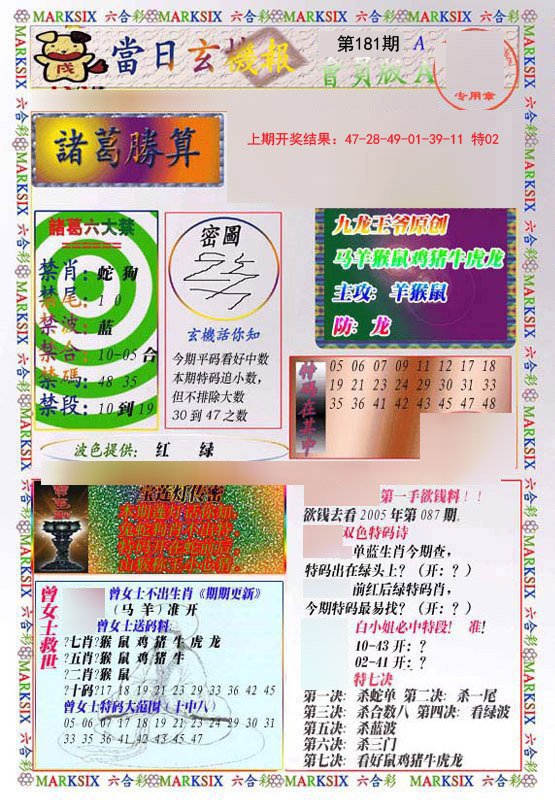 MARKSIX 六合彩 MARKSIX 六合彩 MARKSIX 六合彩 MARKSIX
當日玄機報
第181期 A
會員版A
专用章
諸葛勝算
上期开奖结果：47-28-49-01-39-11 特02
諸葛六大禁
禁肖：蛇 狗
禁尾：1 0
禁波：蓝
禁合：10-05 合
禁碼：48 35
禁段：10 到 19
密圖
玄機話你知
今期平码看好中数
本期特码追小数，
但不排除大数
30 到 47 之数
九龙王爷原创
马羊猴鼠鸡猪牛虎龙
主攻：羊猴鼠
防：龙
特码在其中
05 06 07 09 11 12 17 18
19 21 23 24 29 30 31 33
35 36 41 42 43 45 47 48
波色提供：红 绿
宝莲灯传密
曾女士救世
曾女士不出生肖《期期更新》
（马 羊）准 开
曾女士送码料：
?七肖?猴 鼠 鸡 猪 牛 虎 龙
?五肖?猴 鼠 鸡 猪 牛
?二肖?猴 鼠
?十码?17 18 19 21 23 29 33 36 42 45
曾女士特码大范围（十中八）
05 06 07 17 18 19 21 23 24 29 30 31
33 35 36 41 42 43 45 47
第一手欲钱料！！
欲钱去看 2005 年第 087 期.
双色特码诗
单蓝生肖今期查，
特码出在绿头上？（开：？）
前红后绿特码肖，
今期特码最易找？（开：？）
白小姐必中特段！ 准！
10-43 开：？
02-41 开：？
特七决
第一决：杀蛇单 第二决：杀一尾
第三决：杀合数八 第四决：看绿波
第五决：杀蓝波
第六决：杀三门
第七决：看好鼠鸡猪牛虎龙
MARKSIX 六合彩 MARKSIX 六合彩 MARKSIX 六合彩 MARKSIX